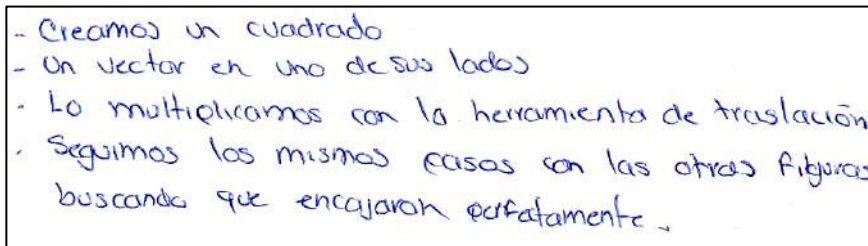 - Creamos un cuadrado
- Un vector en uno de sus lados
- Lo multiplicamos con la herramienta de traslación
- Seguimos los mismos pasos con las otras figuras
buscando que encajaran perfatamente.